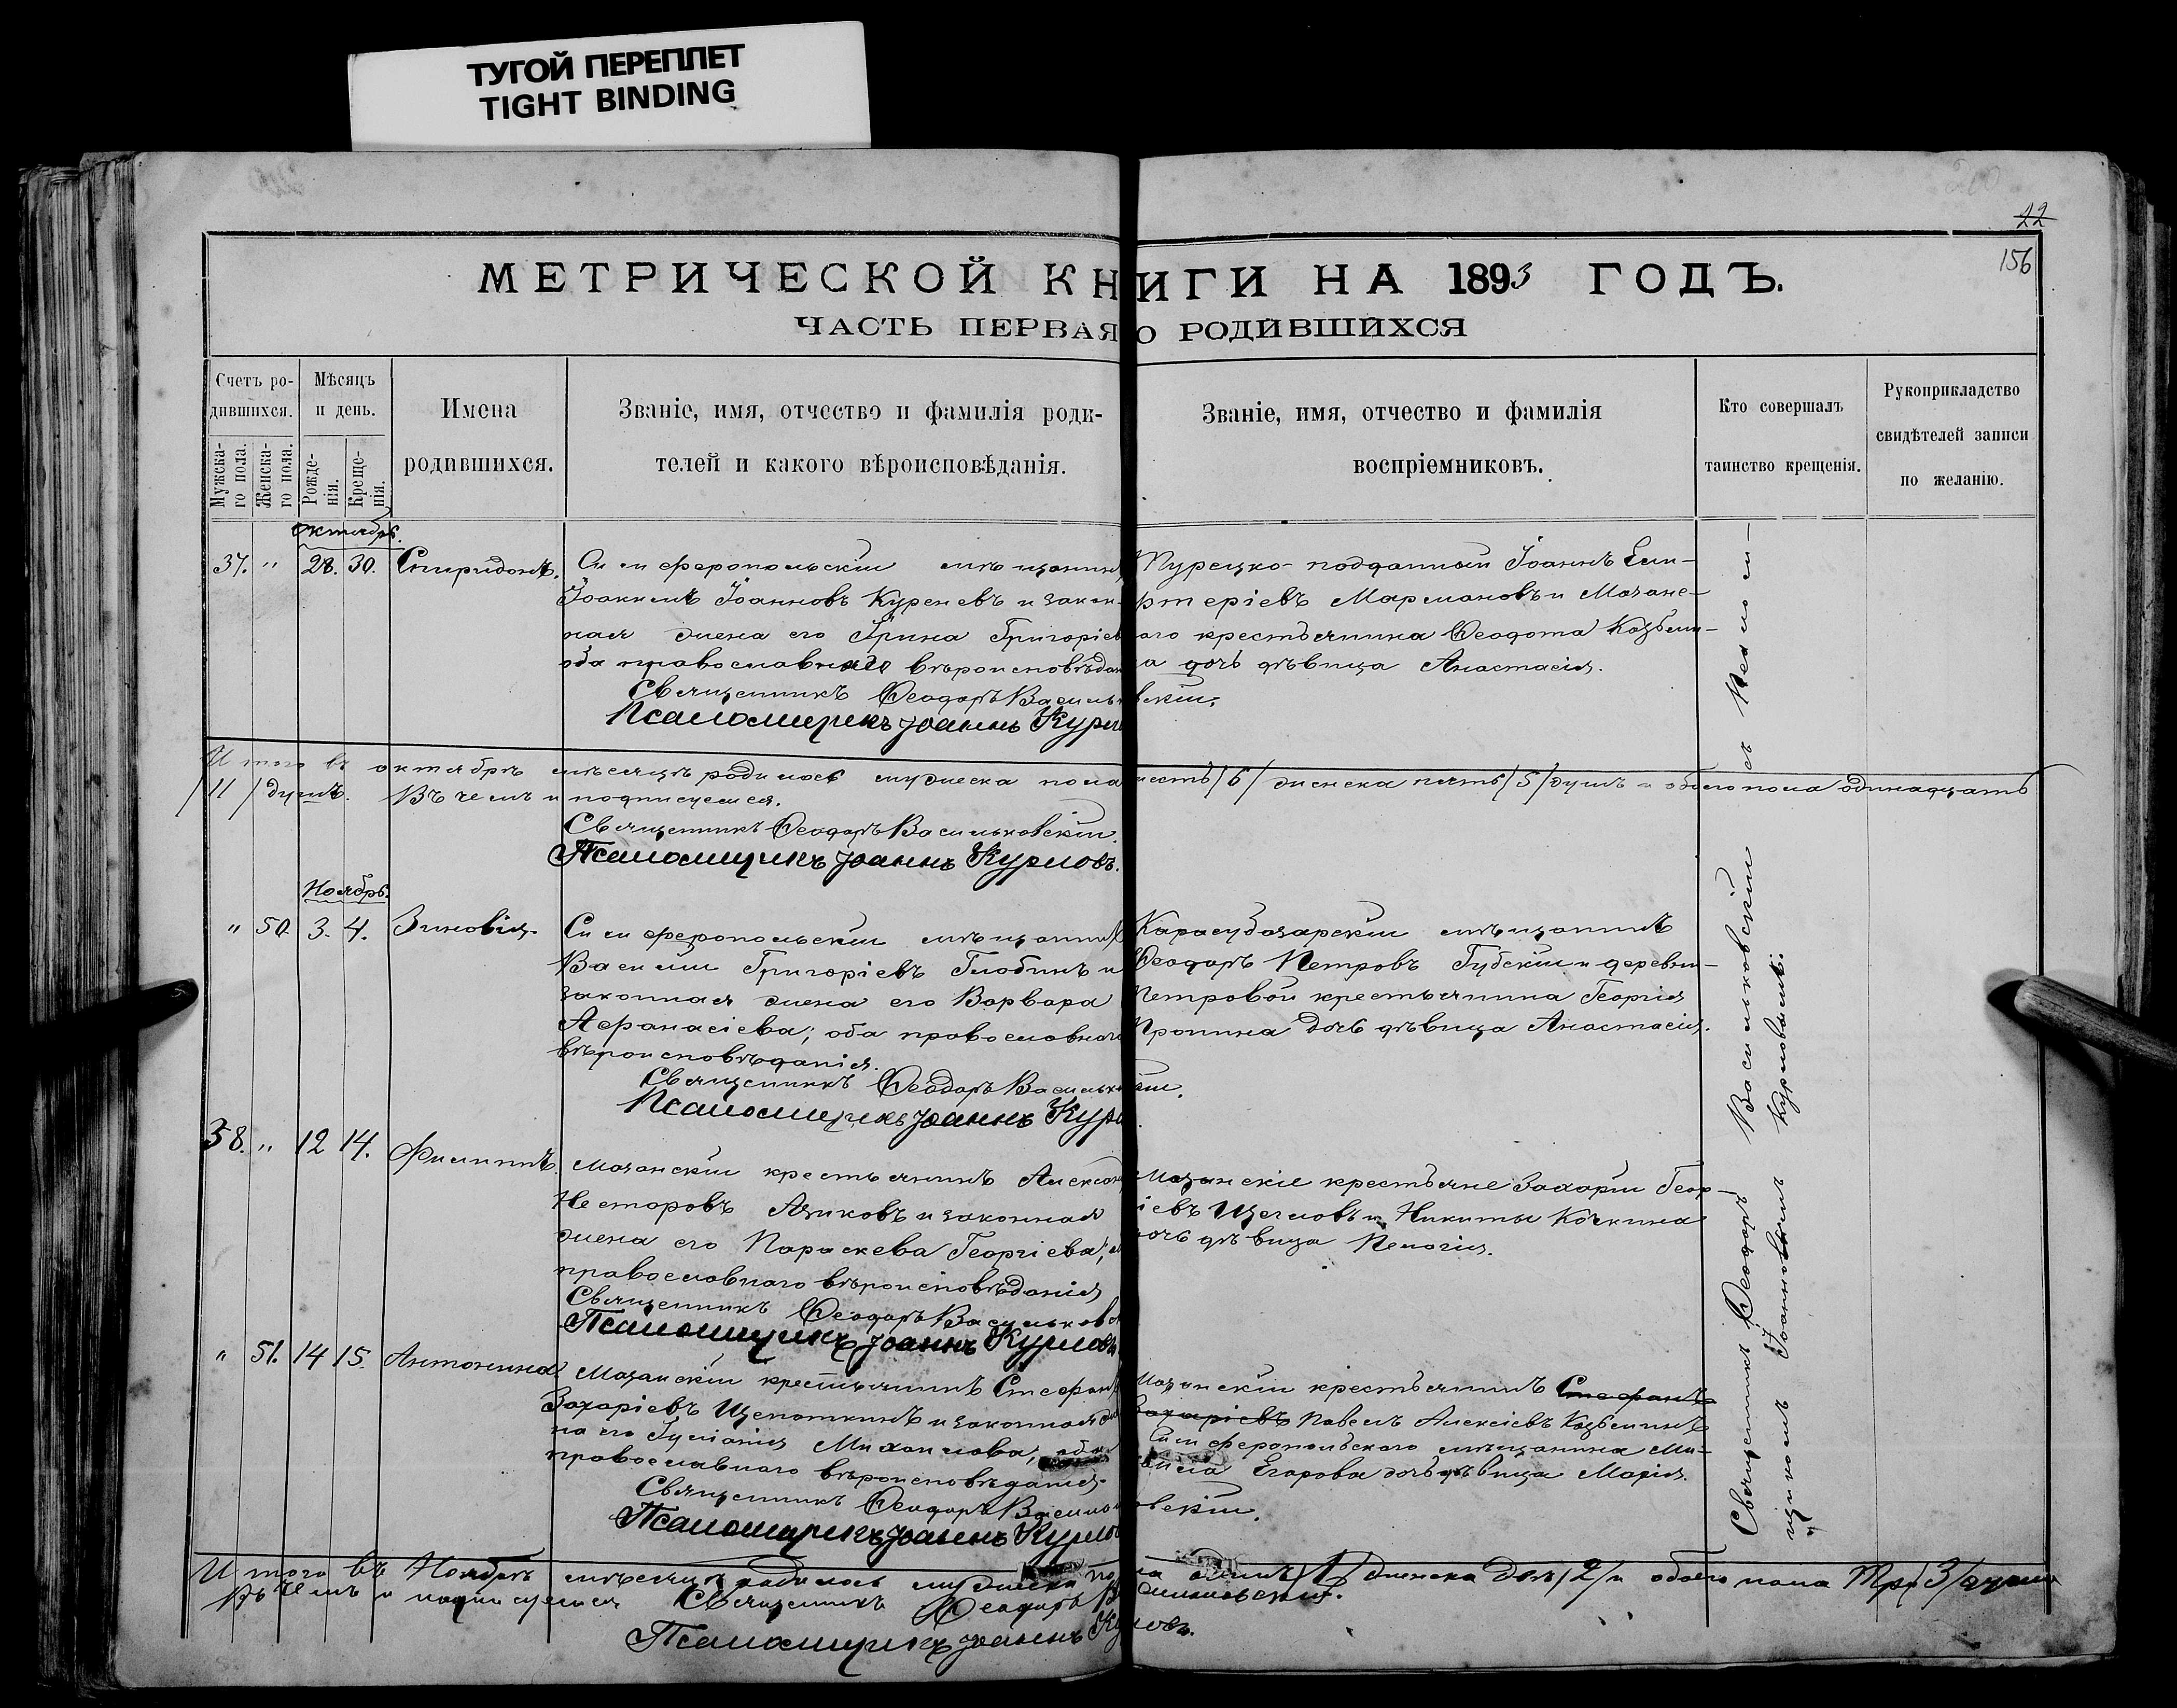 ТУГОЙ ПЕРЕПЛЕТ
TIGHT BINDING
22
156
МЕТРИЧЕСКОЙ КНИГИ НА 1893 ГОДЪ.
ЧАСТЬ ПЕРВАЯ О РОДИВШИХСЯ
Счетъ ро-
дившихся.
Мужска-
го пола.
Женска-
го пола.
Мѣсяцъ
и день.
Рожде-
нія.
Креще-
нія.
Имена
родившихся.
Званіе, имя, отчество и фамилія роди-
телей и какого вѣроисповѣданія.
Званіе, имя, отчество и фамилія
воспріемниковъ.
Кто совершалъ
таинство крещенія.
Рукоприкладство
свидѣтелей записи
по желанію.
Октябрь.
37. " 28. 30. Спиридонъ.
Симферопольскій мѣщанинъ
Іоакимъ Іоанновъ Куреневъ и закон-
ная жена его Ирина Григоріев
оба православнаго вѣроисповѣдан
Священникъ Ѳеодоръ Васильковскій.
Псаломщикъ Іоаннъ Курл
Турецко-подданный Іоаннъ
Мармановъ и Мазанс-
аго крестьянина Ѳеодота Козьми-
а дочь дѣвица Анастасія.
Итого въ октябрѣ мѣсяцѣ родилось мужеска пола шесть /6/ женска пять /5/ душъ а обоего пола одинадцать
/11/ душъ. Въ чемъ и подписуемся.
Священникъ Ѳеодоръ Васильковскій.
Псаломщикъ Іоаннъ Курловъ.
Ноябрь.
" 50. 3. 4. Зиновія.
Симферопольскій мѣщанинъ
Василій Григоріевъ Глобинъ и
законная жена его Варвара
Аѳанасіева; оба православнаго
вѣроисповѣданія.
Священникъ Ѳеодоръ Васильк
Псаломщикъ Іоаннъ Курл
Карасубазарскій мѣщанинъ
Ѳеодоръ Петровъ Губскій и деревни
Петровой крестьянина Георгія
Пронина дочь дѣвица Анастасія.
38. " 12 14. Филиппъ.
Мазанскій крестьянинъ Александ
Несторовъ Азиковъ и законная
жена его Параскева Георгіева;
православнаго вѣроисповѣданія
Священникъ Ѳеодоръ Васильков
Псаломщикъ Іоаннъ Курловъ
Мазанскіе крестьяне Захарій Геор-
іевъ Щегловъ и Никиты Кочкина
дочь дѣвица Пелагія.
" 51. 14 15. Антонина
Мазанскій крестьянинъ Стефанъ
Захаріевъ Щепоткинъ и законная же
на его Іуліанія Михаилова, оба
православнаго вѣроисповѣданія.
Священникъ Ѳеодоръ Василь
Псаломщикъ Іоаннъ Курло
Мазанскій крестьянинъ Стефанъ
Захаріевъ Павелъ Алексіевъ Козьминъ
Симферопольскаго мѣщанина Ми-
хаила Егорова дочь дѣвица Марія.
овскій.
Итого въ Ноябрѣ мѣсяцѣ родилось мужеска пола одинъ /1/ женска двѣ /2/ и обоего пола три /3/ души
Въ чемъ и подписуемся Священникъ Ѳеодоръ Васильковскій.
Псаломщикъ Іоаннъ Курловъ.
Священникъ Ѳеодоръ Васильковскій съ Псалом-
щикомъ Іоанновымъ Курловымъ.